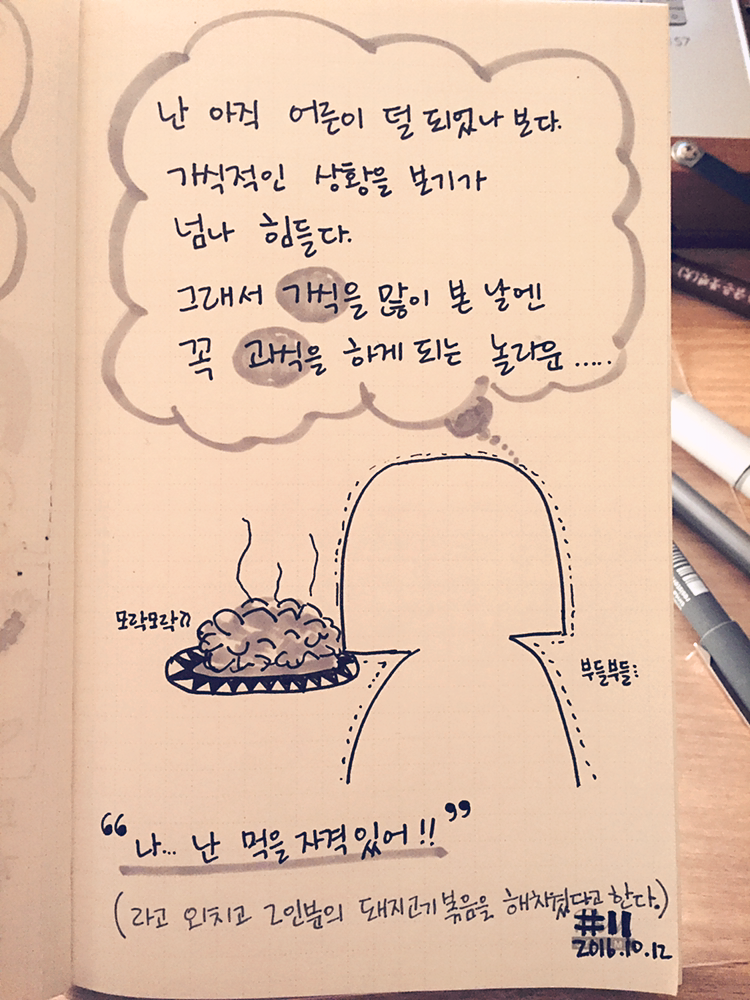 난 아직 어른이 덜 되었나 보다.
가식적인 상황을 보기가
넘나 힘들다.
그래서 가식을 많이 본 날엔
꼭 과식을 하게 되는 놀라운 .....
모락모락
부들부들
“나... 난 먹을 자격 있어!!”
(라고 외치고 2인분의 돼지고기볶음을 해치웠다고 한다.)
#11
2016.10.12